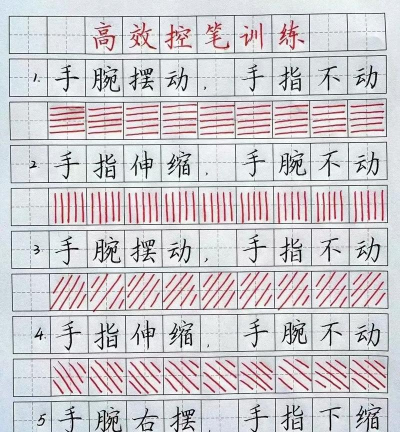 高效控笔训练
1. 手腕摆动, 手指不动
2 手指伸缩, 手腕不动
3. 手腕摆动, 手指不动
4. 手指伸缩, 手腕不动
5 手腕右摆, 手指下缩